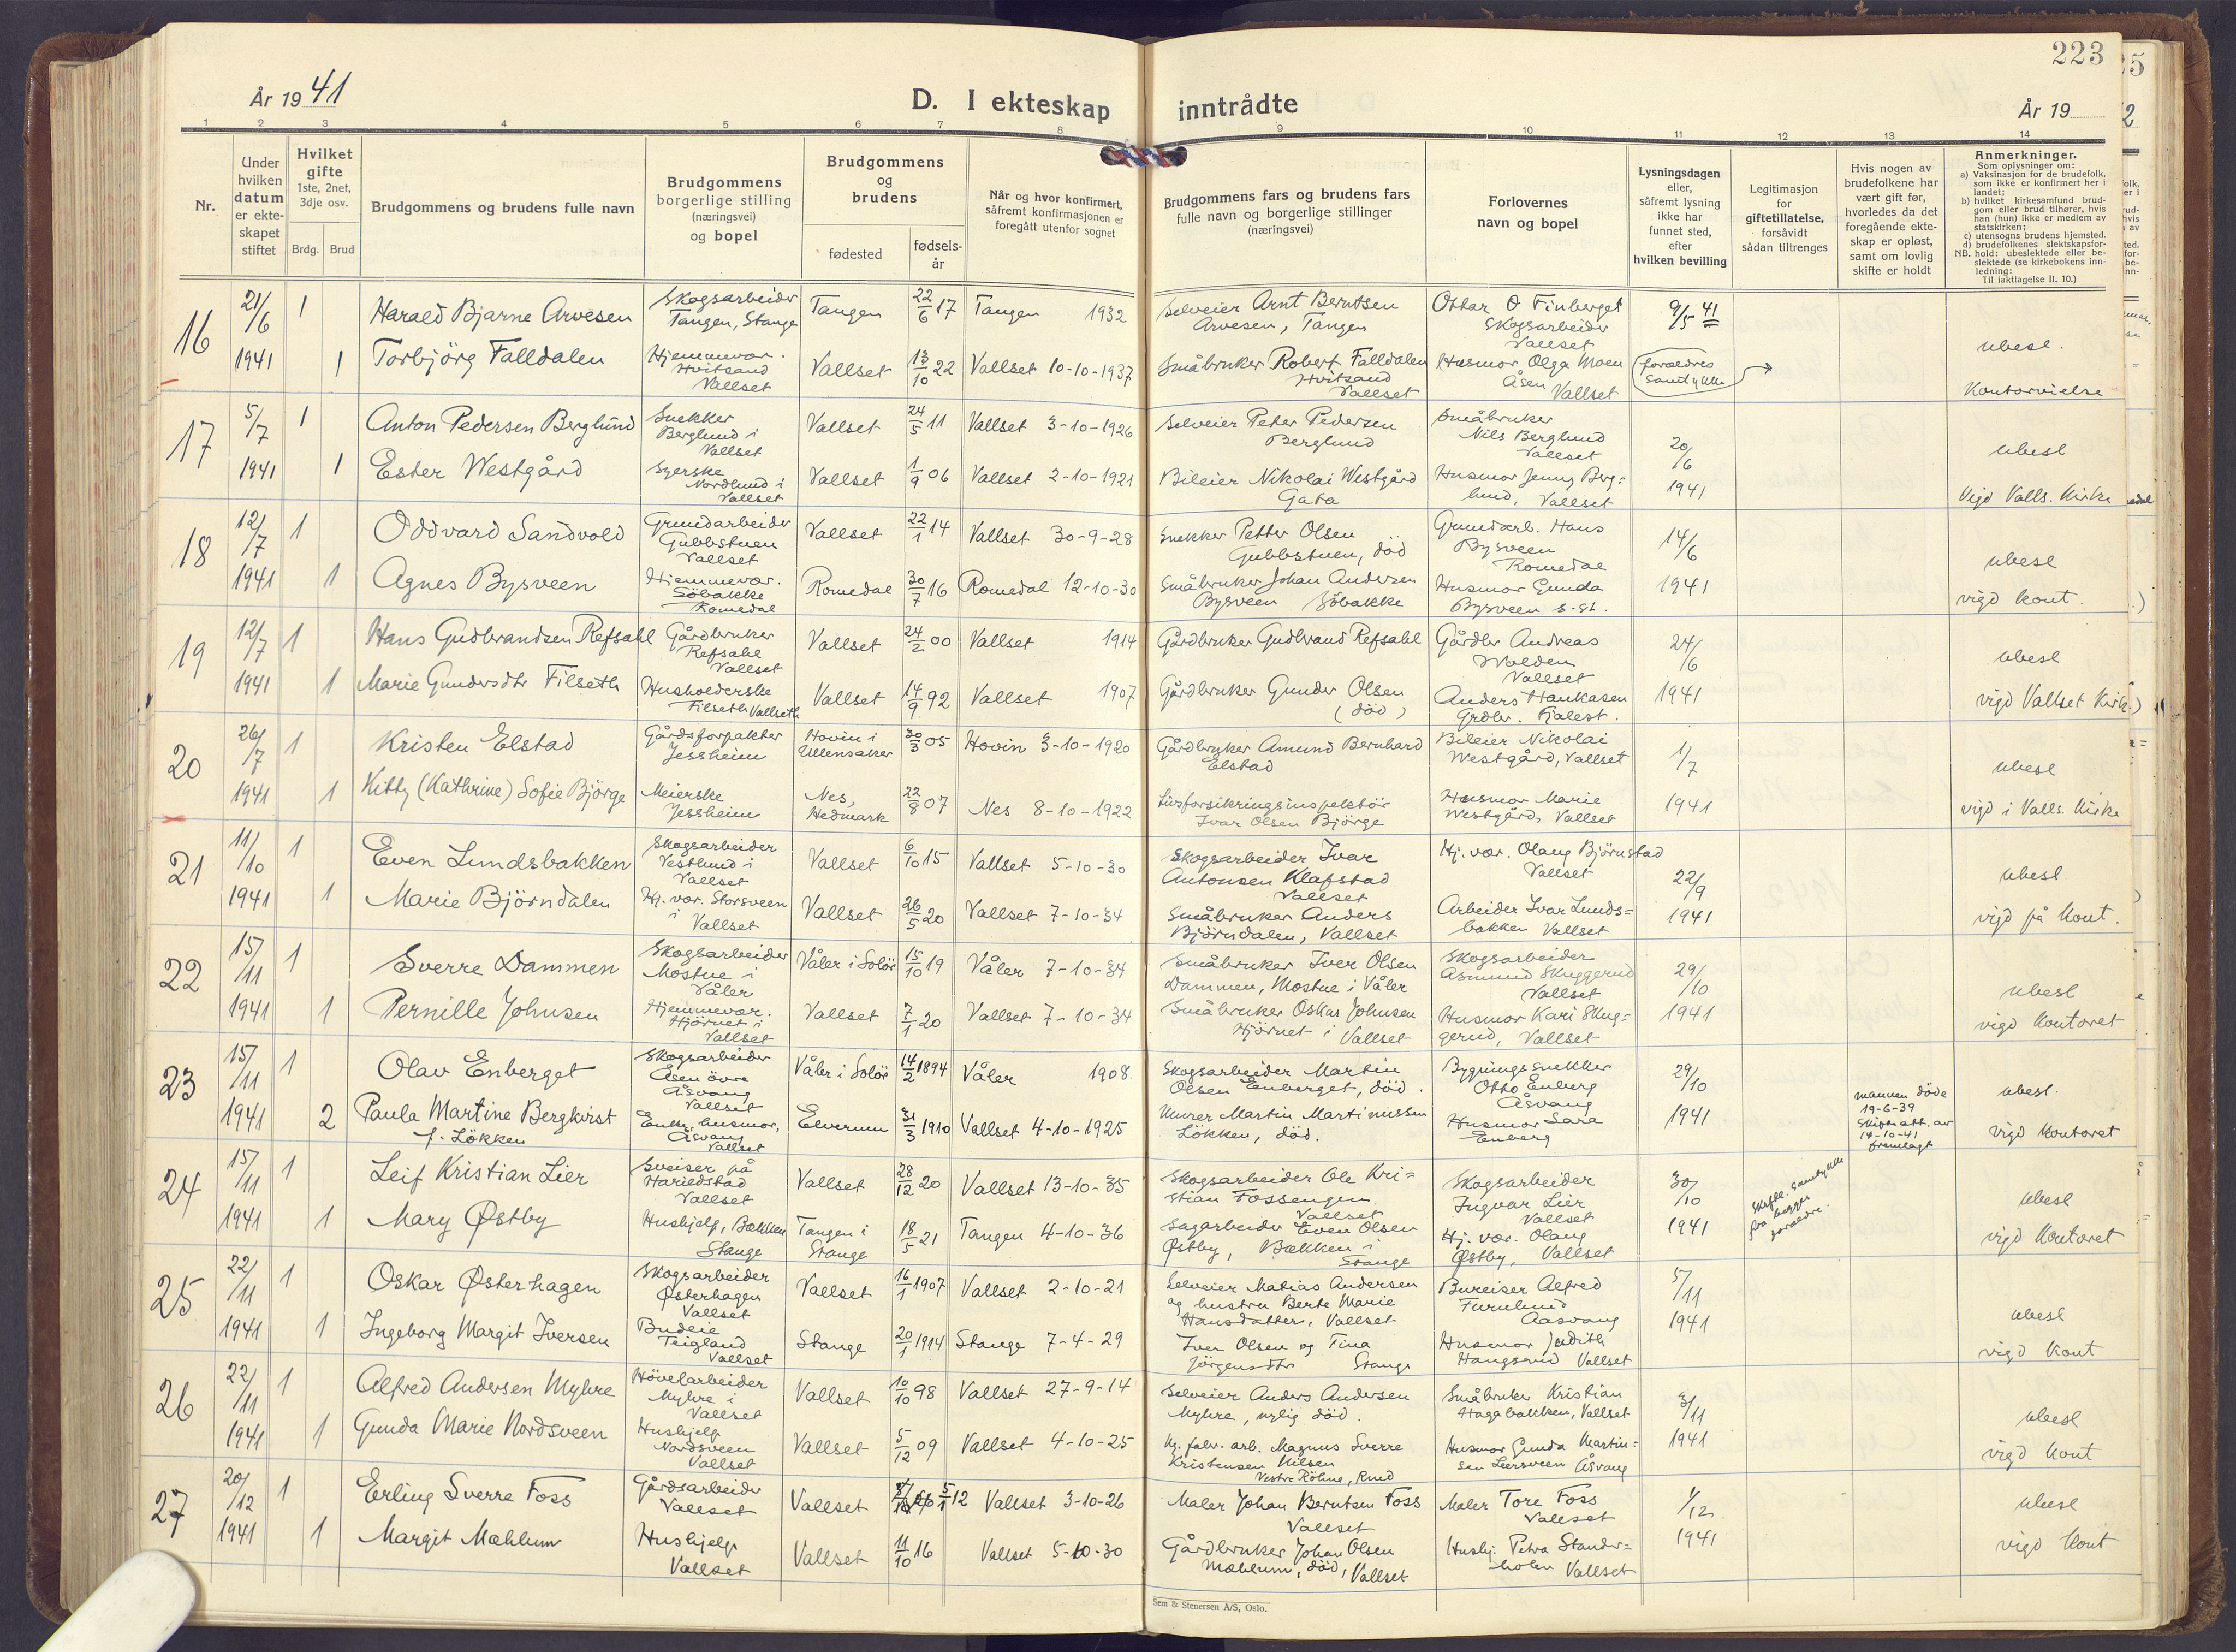 223
År 19 41
D. I ekteskap inntrådte
År 19
1 2 3 4 5 6 7 8 9 10 11 12 13 14
Nr.
Under hvilken datum er ekte-skapet stiftet
Hvilket gifte 1ste, 2net, 3dje osv.
Brdg. Brud
Brudgommens og brudens fulle navn
Brudgommens borgerlige stilling (næringsvei) og bopel
Brudgommens og brudens
fødested
fødsels-år
Når og hvor konfirmert, såfremt konfirmasjonen er foregått utenfor sognet
Brudgommens fars og brudens fars fulle navn og borgerlige stillinger (næringsvei)
Forlovernes navn og bopel
Lysningsdagen eller, såfremt lysning ikke har funnet sted, efter hvilken bevilling
Legitimasjon for giftetillatelse, forsåvidt sådan tiltrenges
Hvis nogen av brudefolkene har vært gift før, hvorledes da det foregående ekte-skap er opløst, samt om lovlig skifte er holdt
Anmerkninger.
Som oplysninger om:
a) Vaksinasjon for de brudefolk, som ikke er konfirmert her i landet;
b) hvilket kirkesamfund brud-gom eller brud tilhører, hvis han (hun) ikke er medlem av statskirken;
c) utensogns brudens hjemsted.
d) brudefolkenes slektskapsfor-hold: ubeslektede eller be-slektede (se kirkebokens inn-ledning:
NB. Til iakttagelse II. 10.)
16 21/6 1941 1 Harald Bjarne Arvesen Skogsarbeider Tangen, Stange Tangen 22/6 17 Tangen 1932 Selveier Arnt Berntsen Arvesen, Tangen Ottar O Finberget Skogsarbeider Vallset 9/5 41 ubesl.
1 Torbjörg Falldalen Hjemmevær. Hvitsand Vallset Vallset 13/10 22 Vallset 10-10-1937 Småbruker Robert Falldalen Hvitsand Vallset Husmor Olga Moen Åsen Vallset foreldres samtykke Kontorvielse
17 5/7 1941 1 Anton Pedersen Berglund Snekker Berglund i Vallset Vallset 24/5 11 Vallset 3-10-1926 Selveier Peter Pedersen Berglund Småbruker Nils Berglund Vallset 20/6 1941 ubesl
1 Ester Westgård Syerske Nordlund i Vallset Vallset 1/9 06 Vallset 2-10-1921 Bileier Nikolai Westgård Gata Husmor Jenny Berg=lund, Vallset Vigd Valls. Kirke
18 12/7 1941 1 Oddvard Sandvold Grundarbeider Gubbstuen Vallset Vallset 22/1 14 Vallset 30-9-28 Snekker Petter Olsen Gubbstuen, död Grundarb. Hans Bysveen Romedal 14/6 1941 ubesl
1 Agnes Bysveen Hjemmevær. Söbakke Romedal Romedal 30/7 16 Romedal 12-10-30 Småbruker Johan Andersen Bysveen Söbakke Husmor Gunda Bysveen s.st. vigd kont.
19 12/7 1941 1 Hans Gudbrandsen Refsahl Gårdbruker Refsahl Vallset Vallset 24/2 00 Vallset 1914 Gårdbruker Gudbrand Refsahl Gårdbr Andreas Wolden Vallset 24/6 1941 ubesl
1 Marie Gundersdtr Filseth Husholderske Filseth Vallseth Vallset 14/9 92 Vallset 1907 Gårdbruker Gunder Olsen (död) Anders Haukåsen Grdbr. Fjalest. vigd Vallset Kirk.
20 26/7 1941 1 Kristen Elstad Gårdsforpakter Jessheim Hovin i Ullensaker 30/3 05 Hovin 3-10-1920 Gårdbruker Amund Bernhard Elstad Bileier Nikolai Westgård, Vallset 1/7 1941 ubesl
1 Kitty (Kathrine) Sofie Björge Meierske Jessheim Nes, Hedmark 22/8 07 Nes 8-10-1922 Livsforsikringsinspektör Ivar Olsen Björge Husmor Marie Westgård, Vallset vigd i Valls. Kirke
21 11/10 1941 1 Even Lundsbakken Skogsarbeider Vestlund i Vallset Vallset 6/10 15 Vallset 5-10-30 Skogsarbeider Ivar Antonsen Klafstad Vallset Hj. vær. Olaug Björnstad Vallset 22/9 1941 ubesl
1 Marie Björndalen Hj. vær. Storsveen i Vallset Vallset 26/5 20 Vallset 7-10-34 Småbruker Anders Björndalen, Vallset Arbeider Ivar Lunds=bakken Vallset vigd på Kont.
22 15/11 1941 1 Sverre Dammen Skogsarbeider Mostue i Våler Våler i Solör 15/10 19 Våler 7-10-34 Småbruker Iver Olsen Dammen, Mostue i Våler Skogsarbeider Asmund Skuggerud Vallset 29/10 1941 ubesl
1 Pernille Johnsen Hjemmevær. Hjörnet i Vallset Vallset 7/1 20 Vallset 7-10-34 Småbruker Oskar Johnsen Hjörnet i Vallset Husmor Kari Skug=gerud, Vallset vigd kontoret
23 15/11 1941 1 Olav Enberget Skogsarbeider Åsen övre Åsvang Vallset Våler i Solör 14/2 1894 Våler 1908. Skogsarbeider Martin Olsen Enberget, död. Bygningssnekker Otto Enberg Åsvang 29/10 1941 ubesl.
2 Paula Martine Bergkvist f. Lökken Enke, husmor, Åsvang Vallset Elverum 31/3 1910 Vallset 4-10-1925 Murer Martin Martinussen Lökken, död. Husmor Sara Enberg mannen döde 19-6-39 Skifteatt. av 14-10-41 fremlagt vigd kontoret
24 15/11 1941 1 Leif Kristian Lier Sveiser på Harildstad Vallset Vallset 28/12 20 Vallset 13-10-35 Skogsarbeider Ole Kri=stian Fossengen Vallset Skogsarbeider Ingvar Lier Vallset 30/10 1941 Skriftl. samtykke fra begges foreldre. ubesl
1 Mary Østby Hushjelp, Bækken Stange Tangen i Stange 18/5 21 Tangen 4-10-36 Sagarbeider Even Olsen Østby, Bækken i Stange Hj. vær. Olaug Østby, Vallset vigd Kontoret
25 22/11 1941 1 Oskar Østerhagen Skogsarbeider Østerhagen Vallset Vallset 16/1 1907 Vallset 2-10-21 Selveier Matias Andersen og hustru Berte Marie Hansdatter, Vallset Bureiser Alfred Furulund Aasvang 5/11 1941 ubesl
1 Ingeborg Margit Iversen Budeie Teigland Vallset Stange 20/1 1914 Stange 7-4-29 Iver Olsen og Tina Jörgensdtr Stange Husmor Judith Haugsrud Vallset vigd kont
26 22/11 1941 1 Alfred Andersen Myhre Hövelarbeider Myhre i Vallset Vallset 10/10 98 Vallset 27-9-14 Selveier Anders Andersen Myhre, nylig död. Småbruker Kristian Hagabakken, Vallset 3/11 1941 ubesl
1 Gunda Marie Nordsveen Hushjelp Nordsveen Vallset Vallset 5/12 09 Vallset 4-10-25 fabr. arb. Magnus Sverre Kristensen Nilsen Vestre Röhne, Husmor Gunda Martin=sen Leersveen Åsvang vigd kont
27 20/12 1941 1 Erling Sverre Foss Gårdsarbeider Vallset Vallset 5/1 12 Vallset 3-10-26 Maler Johan Berntsen Foss Vallset Maler Tore Foss Vallset 1/12 1941 ubesl
1 Margit Mæhlum Hushjelp Vallset Vallset 11/10 16 Vallset 5-10-30 Gårdbruker Johan Olsen Mæhlum, död, Vallset Hushj. Petra Stander=holen Vallset vigd kont
Sem & Stenersen A/S, Oslo.